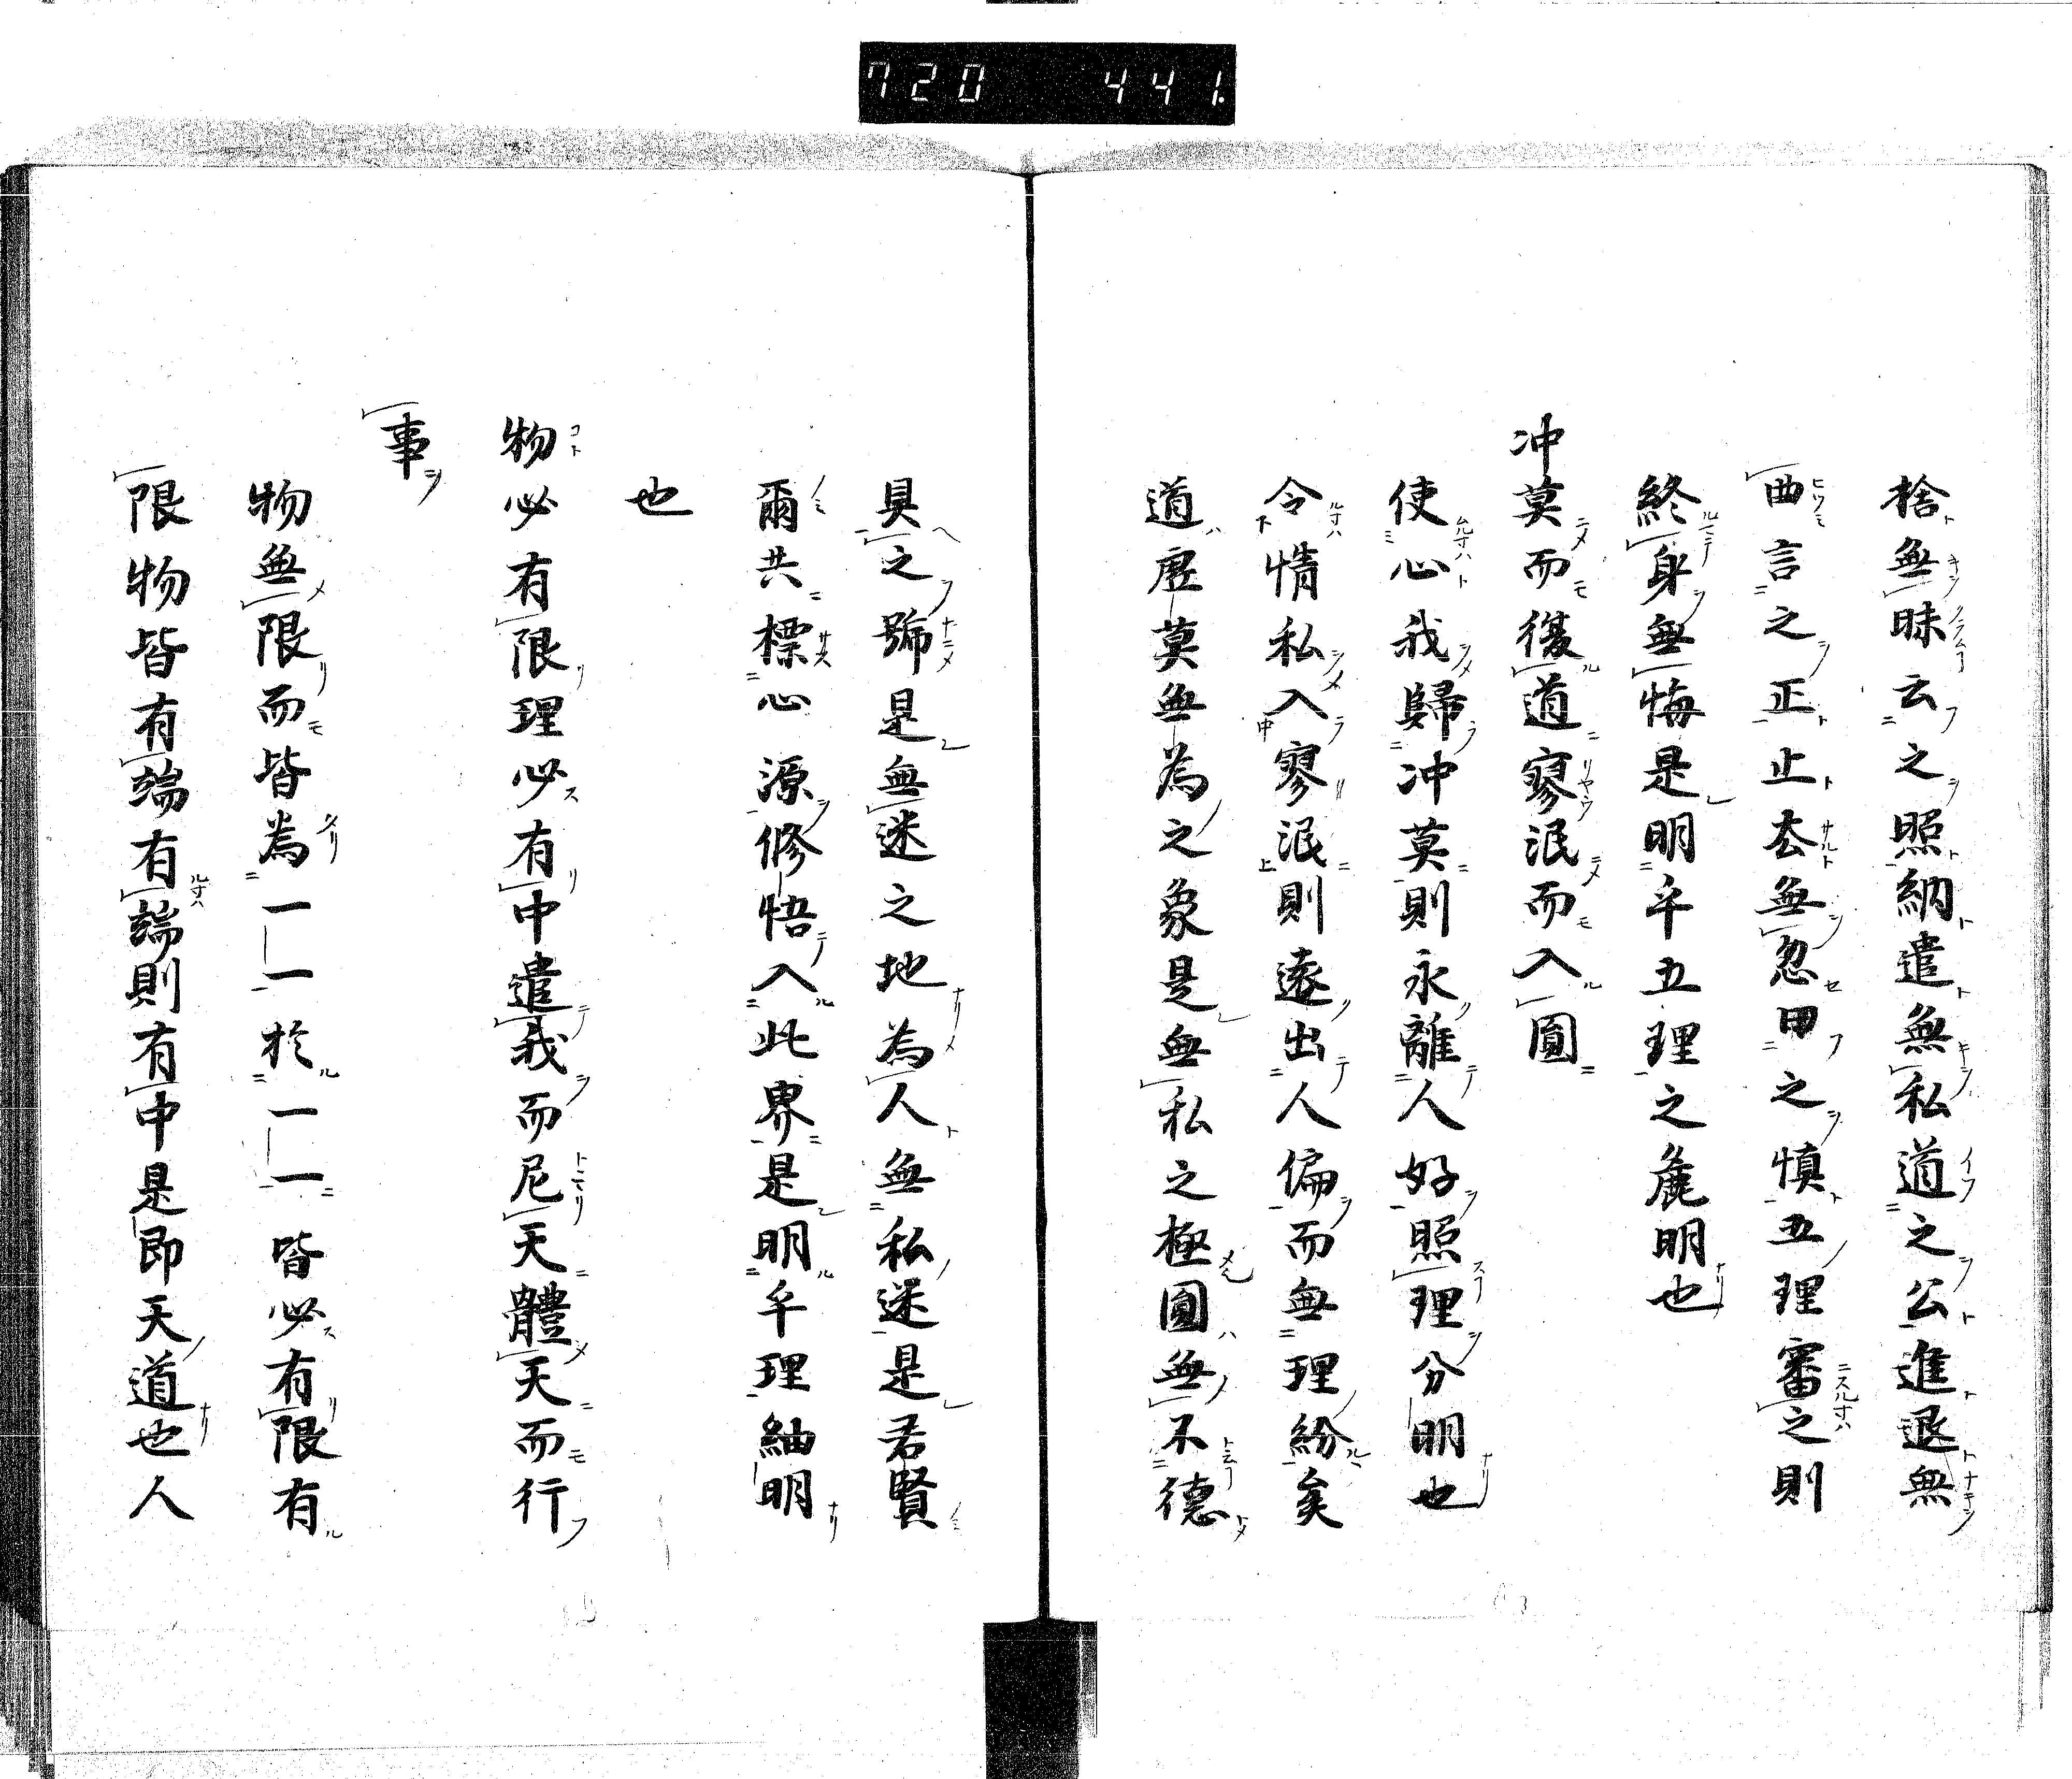 720 441.
捨無昧云之照納遣無私道之公進退無
曲言之正止去無忽甲之慎五理審之則
終身無悔是明乎五理之麁明也
冲莫而復道寥泯而入圓
使心我歸冲莫則永離人好照理分明也
令情私入寥泯則遠出人偏而無理紛矣
道虚莫無為之象是無私之極圓無不德
具之號是無迷之地為人無私迷是君賢
爾共標心源修悟入此界是明乎理紬明
也
物必有限理必有中遣我而尼天體天而行
事
物無限而皆為一一於一一皆必有限有
限物皆有端有端則有中是即天道也人